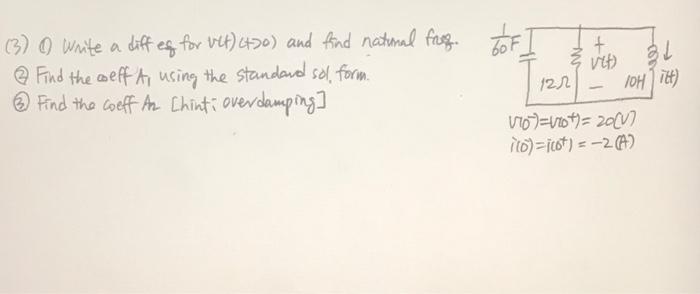 (3) ① Write a diff eq for v(t) (t>0) and find natural freq.
② Find the coeff A₁ using the standard sol. form.
③ Find the coeff A₂ [hint; overdamping]
1/60 F
12Ω
+
v(t)
−
10H
i(t)
v(0⁻)=v(0⁺)= 20(V)
i(0⁻)=i(0⁺) = −2(A)